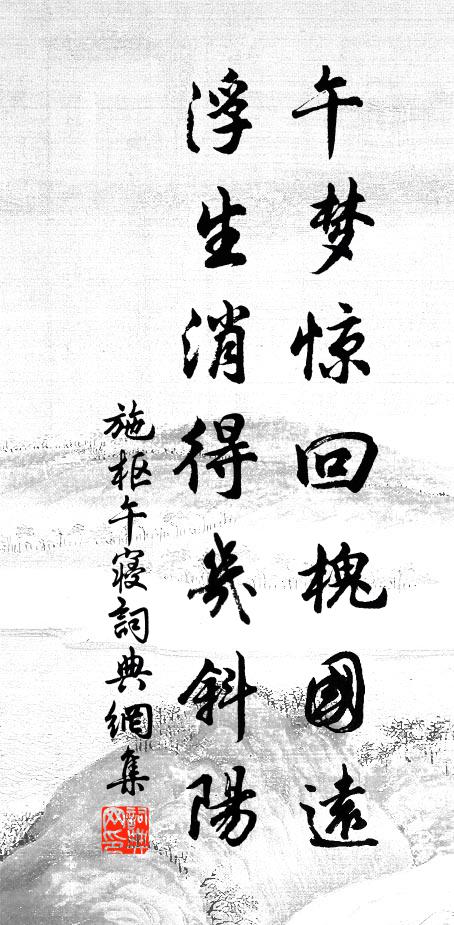 午梦惊回槐國遠
浮生消得幾斜陽
施枢午寝詞典網集